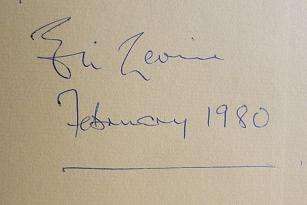 Eric Levine
February 1980